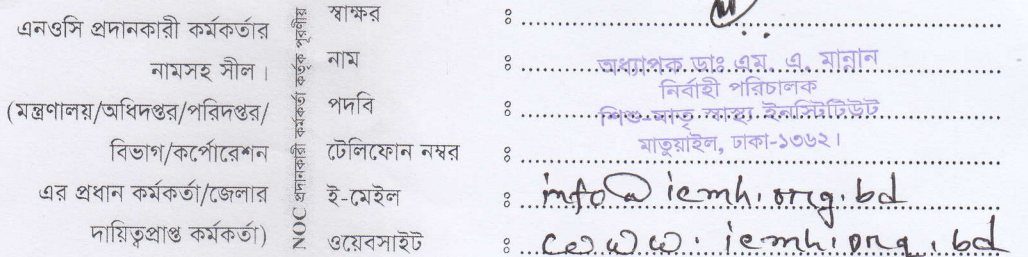 এনওসি প্রদানকারী কর্মকর্তার
নামসহ সীল।
(মন্ত্রণালয়/অধিদপ্তর/পরিদপ্তর/
বিভাগ/কর্পোরেশন
এর প্রধান কর্মকর্তা/জেলার
দায়িত্বপ্রাপ্ত কর্মকর্তা)
NOC প্রদানকারী কর্মকর্তা কর্তৃক পূরণীয়
স্বাক্ষর ঃ
নাম ঃ অধ্যাপক ডাঃ এম. এ. মান্নান
পদবি ঃ নির্বাহী পরিচালক
শিশু-মাতৃ স্বাস্থ্য ইনস্টিটিউট
টেলিফোন নম্বর ঃ মাতুয়াইল, ঢাকা-১৩৬২।
ই-মেইল ঃ info@icmh.org.bd
ওয়েবসাইট ঃ www.icmh.org.bd